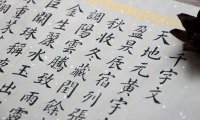 千字文
天地元黃宇
盈昃辰宿列張
秋收冬藏閏餘
調陽雲騰致雨
金生麗水玉出
闕珠稱
重